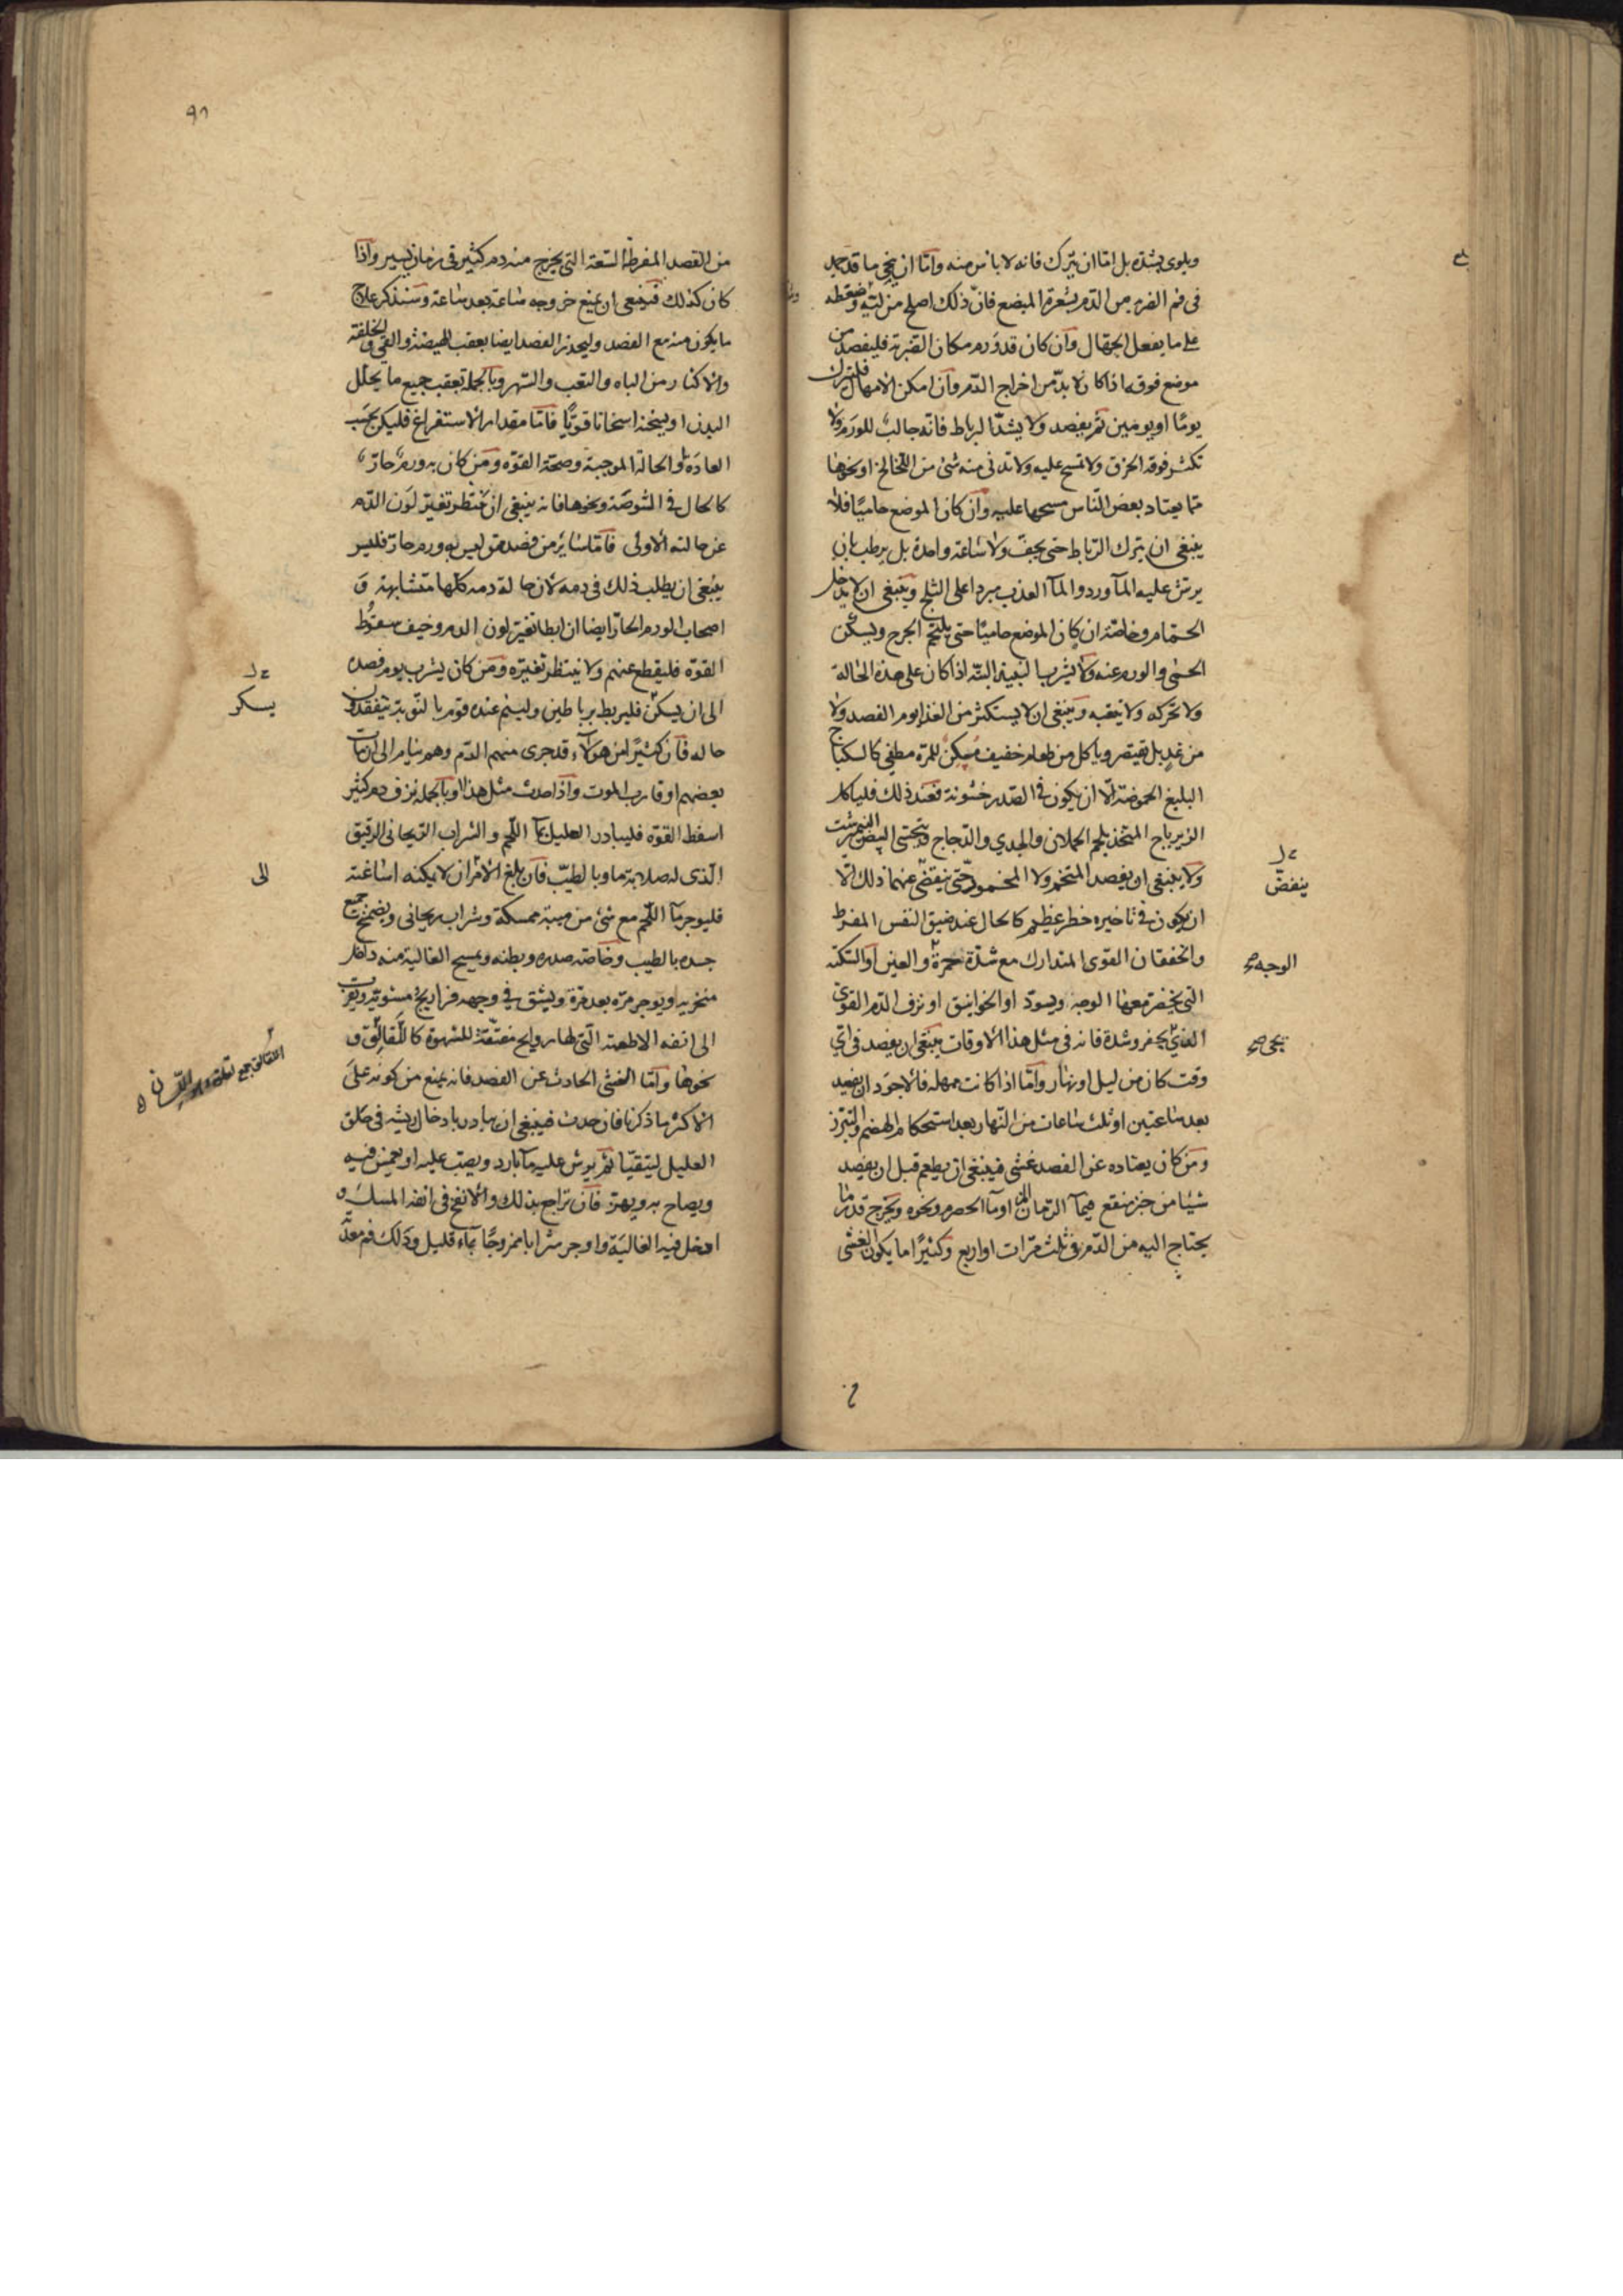 ويلوى بشدة بل اما ان يترك فانه لا باس منه واما ان ينحى ما قد جمد
فى فم الضربه من الدم بشعرة المبضع فان ذلك اصلح من ليه وضغطه
على ما يفعل الجهال وان كان قد ورم مكان الضربة فليفصد من
موضع فوقه اذا كان لا بد من اخراج الدم وان امكن الامهال فليترك
يوما او يومين ثم يفصد ولا يشد الرباط فانه جالب للورم ولا
تكثر فوقه الخرق ولا تمسح عليه ولا تدنى منه شئ من اللخالخ او نحوها
مما يعتاد بعض الناس مسحها عليه وان كان الموضع حاميا فلا
ينبغى ان يترك الرباط حتى يجف ولا ساعة واحدة بل يرطب بان
يرش عليه المآ ورد والمآ العذب مبردا على الثلج وينبغى ان لا يدخل
الحمام وخاصة ان كان الموضع حاميا حتى يلتحم الجرح ويسكن
الحمى والورم عنه ولا يشرب النبيذ البتة اذا كان على هذه الحالة
ولا تحركه ولا يتعبه وينبغى ان لا يستكثر من الغذا يوم الفصد ولا
من غد بل يقتصر وياكل من طعام خفيف مسكن للمرة مطفى كالسكباج
البليغ الحموضة الا ان يكون فى الصدر خشونة فعند ذلك فلياكل
الزيرباج المتخذ بلحم الحملان والجدي والدجاج ويتحسى البيض النيمرشت
ولا ينبغى ان يفصد المتخم ولا المخمور حتى ينقضى عنهما ذلك الا
ينفض
ان يكون فى تاخيره خطر عظيم كالحال عند ضيق النفس المفرط
والخفقان القوى المتدارك مع شدة حمرة والعين او السكتة
الوجه صح
التى يخضر معها الوجه ويسود او الخوانيق او نزف الدم القوى
الذى يحفر وشدة فانه فى مثل هذا الاوقات ينبغى ان يفصد فى اى
يجى صح
وقت كان من ليل او نهار واما اذا كانت مهلة فالاجود ان يفصد
بعد ساعتين او ثلث ساعات من النهار بعد استحكام الهضم والتبرز
ومن كان يعتاده عن الفصد غشى فينبغى ان يطعم قبل ان يفصد
شيئا من خبز منقع فى مآ الرمان المز او مآ الحصرم ونحوه ويخرج قدر ما
يحتاج اليه من الدم فى ثلث مرات او اربع وكثيرا ما يكون الغشى
٩٦
من الفصد المفرط السعة التى يخرج منه دم كثير فى زمان يسير واذا
كان كذلك فينبغى ان يمنع خروجه ساعة بعد ساعة وسنذكر علاج
ما يكون منه مع الفصد وليحذر الفصد ايضا بعقب الهيضة والقى والخلفة
والاكثار من الباه والتعب والسهر وبالجملة بعقب جميع ما يحلل
البدن او يسخنه اسخانا قويا فاما مقدار الاستفراغ فليكن بحسب
العادة والحالة الموجبة وصحة القوة ومن كان به ورم حار
كالحال فى الشوصة ونحوها فانه ينبغى ان ينتظر تغير لون الدم
عن حالته الاولى فاما سائر من فصد ممن ليس به ورم حار فليس
ينبغى ان يطلب ذلك فى دمه لان حالة دمه كلها متشابهة و
اصحاب الورم الحار ايضا ان ابطا تغير لون الدم وخيف سقوط
القوة فليقطع عنهم ولا ينتظر تغيره ومن كان يشرب يوم فصده
الى ان يسكن فليربط برباطين ولينم عنده قوم بالنوبة يتفقدون
يسكر
حاله فان كثيرا من هولآء قد جرى منهم الدم وهم نيام الى ان مات
بعضهم او قارب الموت واذا حدث مثل هذا او بالجملة نزف دم كثير
اسقط القوة فليبادر العليل بمآ اللحم والشراب الريحانى الرقيق
الذى له صلابة ما وبالطيب فان بلغ الامر ان لا يمكنه اساغته
الى
فليوجر مآ اللحم مع شئ من ميبة ممسكة وشراب ريحانى ويضمخ جميع
جسده بالطيب وخاصة صدره وبطنه ويمسح الغالية منه داخل
منخريه ويوجر مرة بعد مرة ويشق فى وجهه فراريج مشوية ويقرب
الى انفه الاطعمة التى لها روايح مفتقة للشهوة كاللقالق و
نحوها واما الغشى الحادث عن الفصد فانه يمنع من كونه على
الاكثر ما ذكرنا فان حدث فينبغى ان يبادر بادخال ريشه فى حلق
العليل ليتقيا ثم يرش عليه مآ بارد ويصب عليه او يغمس فيه
ويصاح به ويهز فان تراجع بذلك والا نفخ فى انفه المسك و
ادخل فيه الغالية واوجر شرابا ممزوجا بمآء قليل ودلك فم معدته